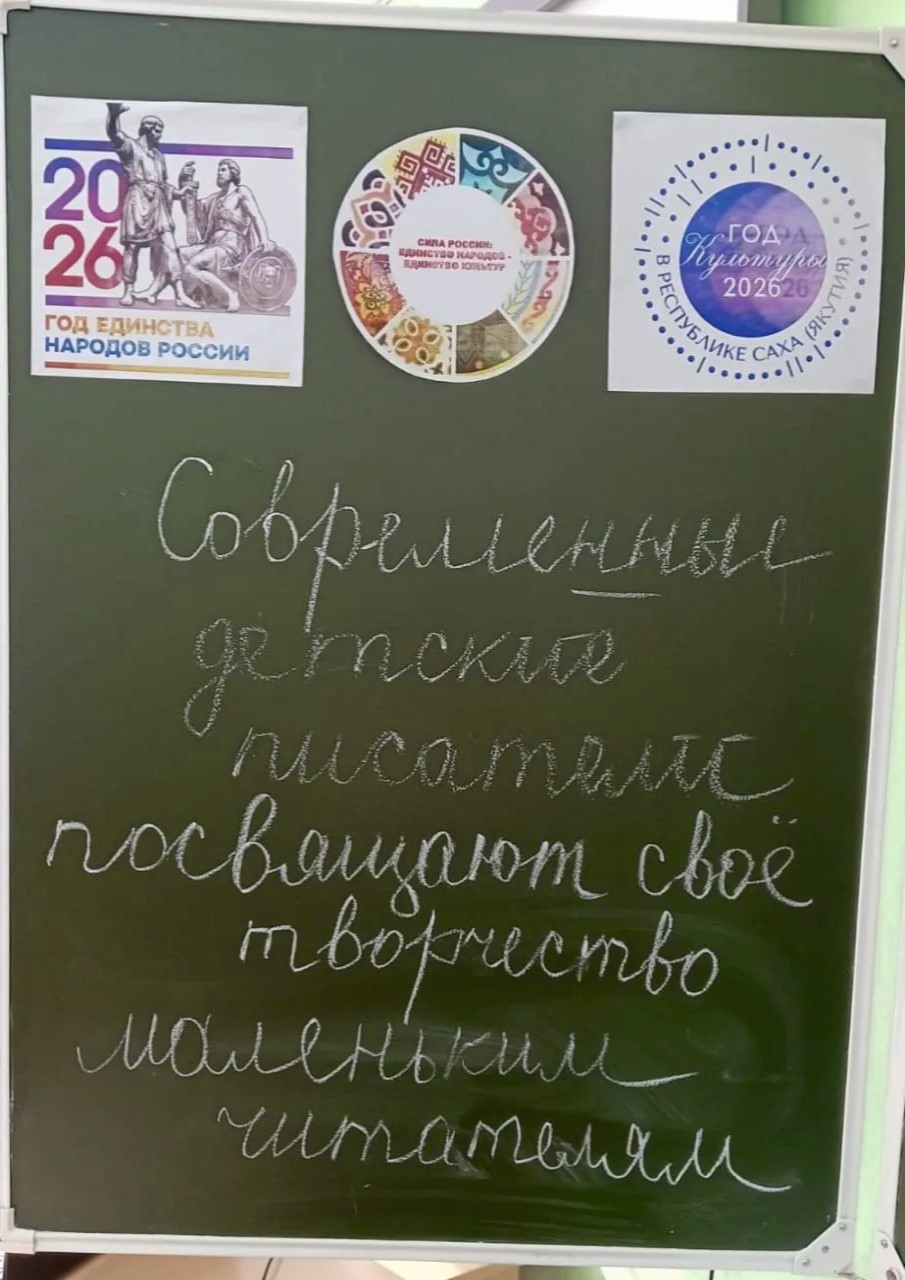 2026
ГОД ЕДИНСТВА
НАРОДОВ РОССИИ
СИЛА РОССИИ:
ЕДИНСТВО НАРОДОВ -
ЕДИНСТВО КУЛЬТУР
ГОД
Культуры
2026
В РЕСПУБЛИКЕ САХА (ЯКУТИЯ)
Современные
детские
писатели
посвящают своё
творчество
маленьким
читателям